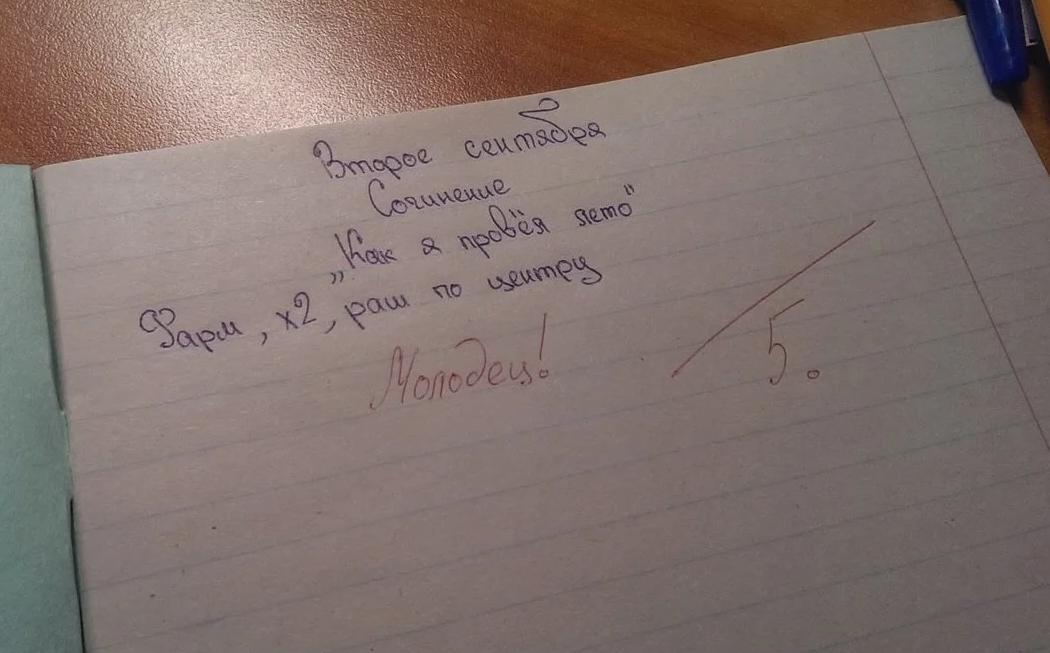 Второе сентября
Сочинение
„Как я провёл лето"
Фарм, х2, раш по центру
Молодец! 5.